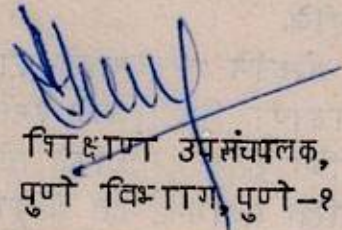 शिक्षण उपसंचालक,
पुणे विभाग, पुणे-१